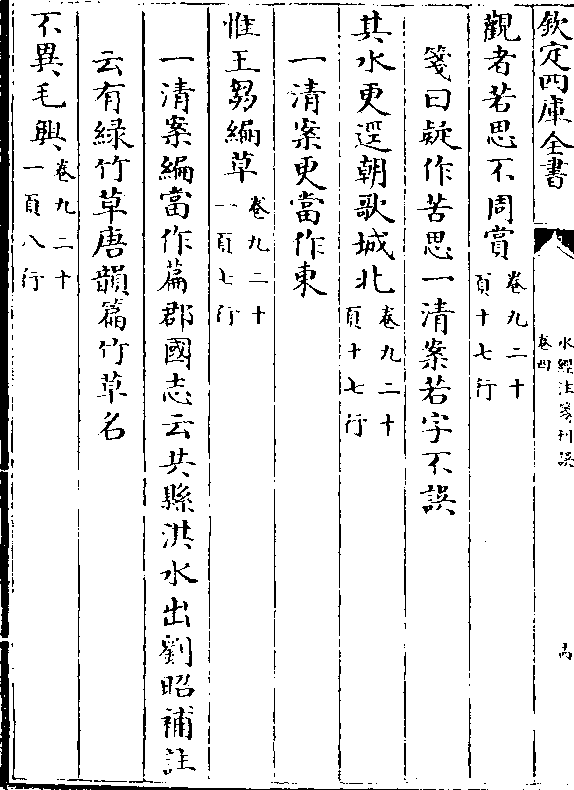 欽定四庫全書
水經注箋刊誤
卷四
觀者若思不周賞卷九二十頁十七行
箋曰疑作苦思一清案若字不誤
其水更逕朝歌城北卷九二十頁十七行
一清案更當作東
惟王芻編草卷九二十一頁七行
一清案編當作篇郡國志云共縣淇水出劉昭補註
云有綠竹草唐韻篇竹草名
不異毛興卷九二十一頁八行